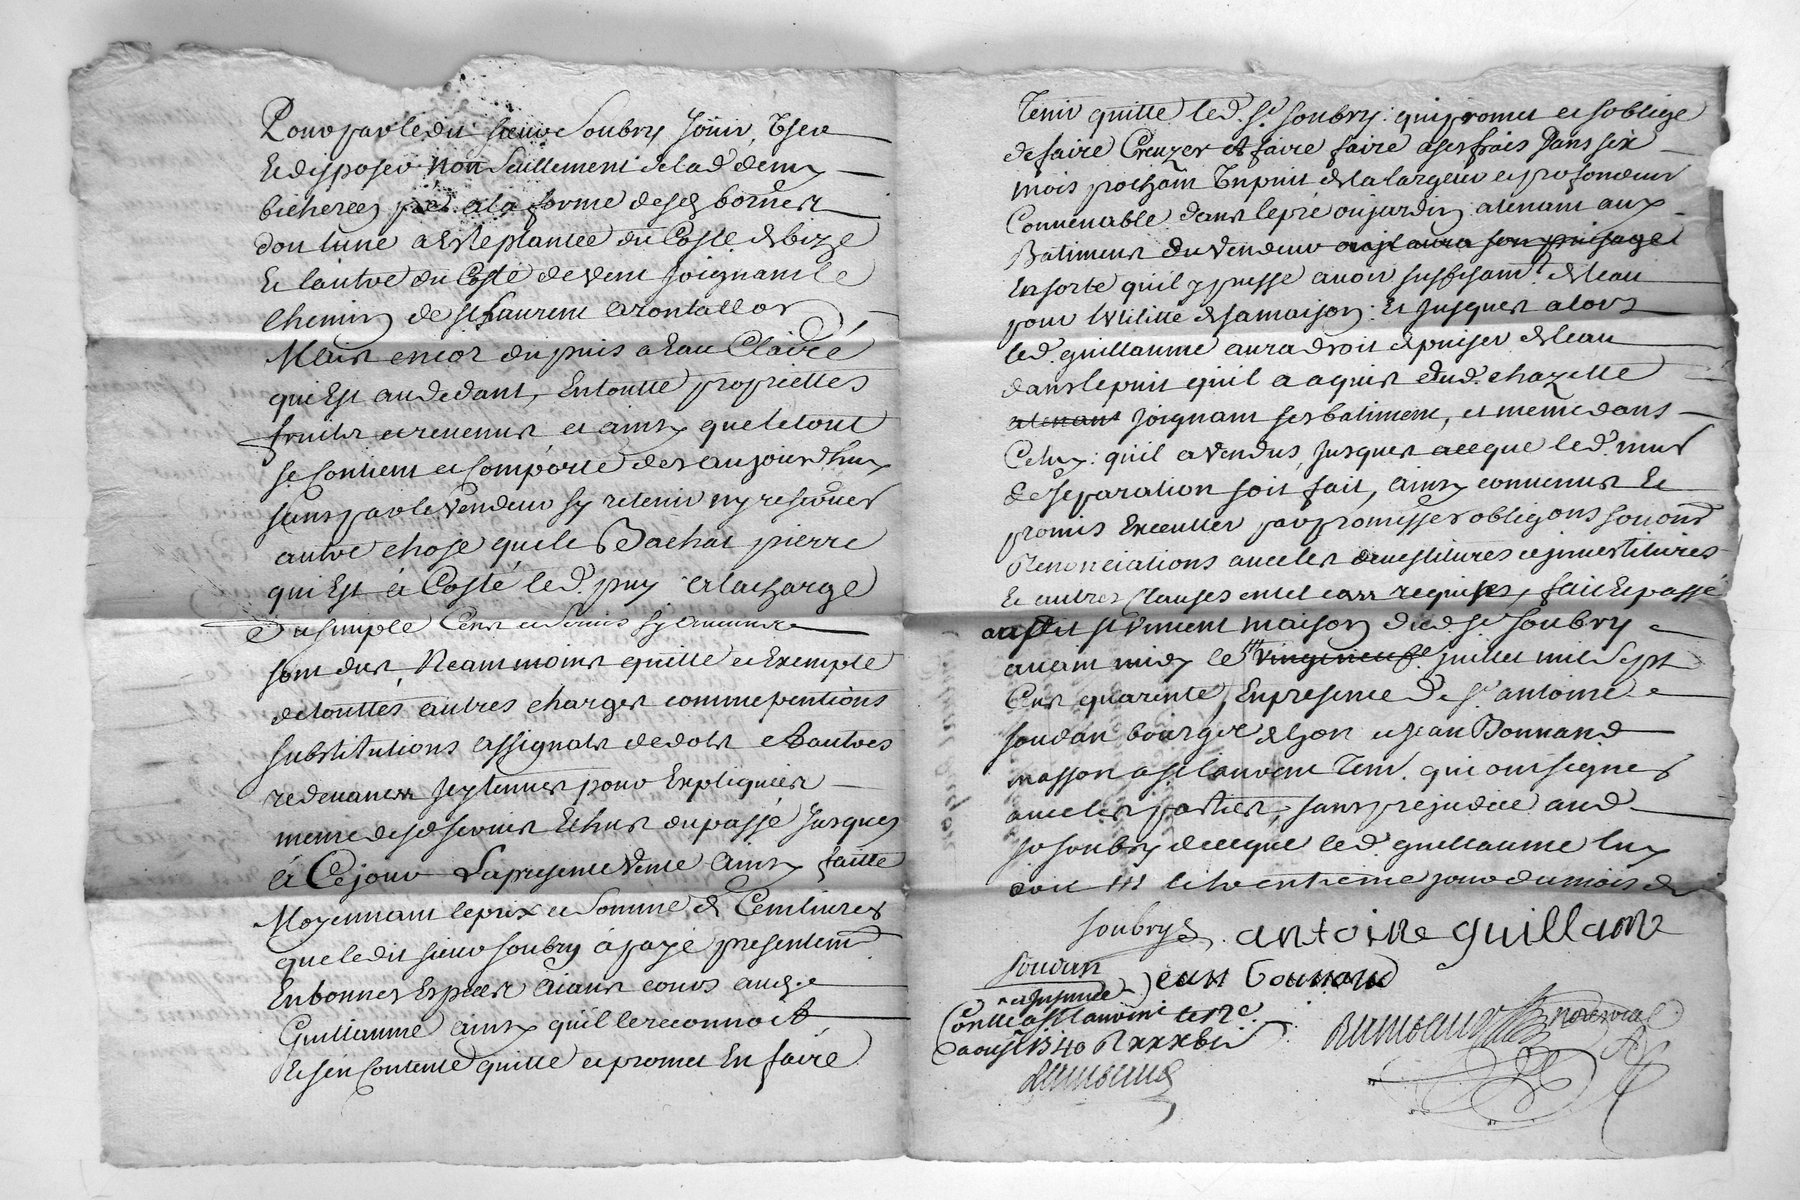 Pour par ledit sieur Soubry Jouir, User
Et disposer non Seullement de lad. deux
bicherees pred. a la forme de ses bornes
don lune a Este plantée du Costé de bize
Et lautre du Costé de vent joignant le
Chemin de St Laurent a rontallon
Mais encor du puis a Eau Claire
qui Est au dedant, En toutte proprietes
fruits et revenus et ainsy que le tout
se Contient et Comporte des aujourdhuy
sans par le Vendeur sy retenir ny reserver
autre chose que le Bachat pierre
qui Est à Costé led. puy et a la charge
du simple Cens et servis sy aucuns
sont dus, Neammoins quitte et Exempte
de touttes autres charges comme pentions
substitutions assignats de dots et autres
redevances
meme desd. servis Echus du passé Jusques
à Ce jour La presente vente Ainsy faitte
Moyennant le prix et Somme de Cent livres
que ledit sieur Soubry à payé presentemt
En bonnes Espèces aiant cours aud.
Guillaume ainsy qu'il le reconnoit
Et s'en Contente quitte et promet En faire
Tenir quitte led. Sr Soubry: qui promet et soblige
de faire Creuzer et faire faire a ses frais Dans six
mois prochain Un puit de la largeur et profondeur
Convenable dans le pré ou jardin atenant aux
Batiments du Vendeur ou il aura son puisage
En sorte qu'il y puisse avoir suffisamt. de leau
pour lutilité de sa maison: Et Jusques alors
led. guillaume aura droit de puiser de leau
dans le puit qu'il a aquis dud. chazelle
atenant Joignant ses batiment, et meme dans
Celuy: qu'il a vendus, Jusques a ce que led. mur
de Separation soit fait, Ainsy convenus Et
promis Executter par promisses obligons
Renonciations avec les devestitures et investitures
Et autres Clauses en tel cas requises, fait Et passé
aud. St Vincent maison dud. Sr Soubry
avant midy le vingtneuf juillet mil Sept
Cens quarente, En presence De Sr. antoine
soudan bourgois de Lyon et Jean Bonnand
masson a St Laurent Tem. qui ont signés
avec les parties, sans prejudice aud.
Sr Soubry de ce que led. guillaume luy
doit /// le trentieme jour du mois de
Soubry antoine guillame
Soudan
Jean bonnand
Conllé a St laurent
d'aoust 1740